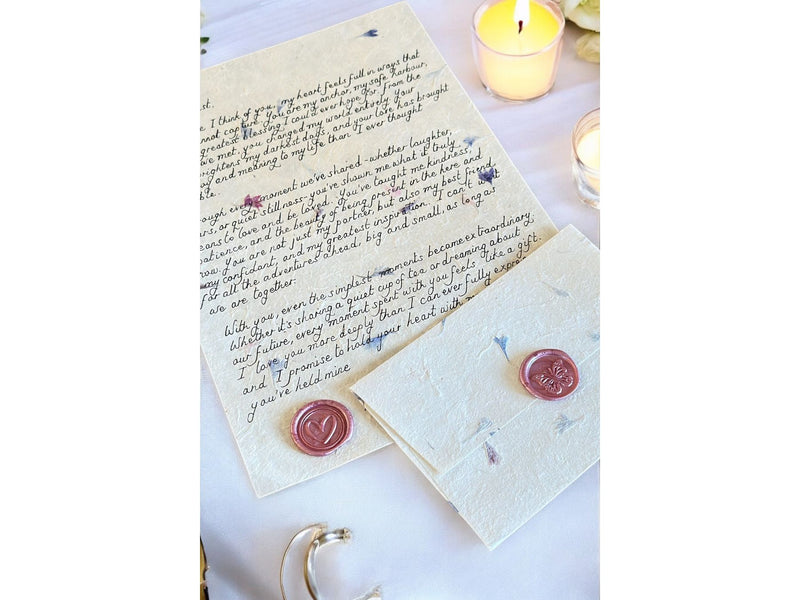 st,
I think of you, my heart feels full in ways that
nnot capture. You are my anchor, my safe harbour,
greatest blessing I could ever hope for. From the
we met, you changed my world entirely. Your
brightens my darkest days, and your love has brought
and meaning to my life than I ever thought
ble.
ough every moment we've shared - whether laughter,
rs, or quiet stillness - you've shown me what it truly
eans to love and be loved. You've taught me kindness,
patience, and the beauty of being present in the here and
now. You are not just my partner, but also my best friend,
my confidant, and my greatest inspiration. I can't wait
for all the adventures ahead, big and small, as long as
we are together.
With you, even the simplest moments become extraordinary.
Whether it's sharing a quiet cup of tea or dreaming about
our future, every moment spent with you feels like a gift.
I love you more deeply than I can ever fully expre
and I promise to hold your heart with
you've held mine